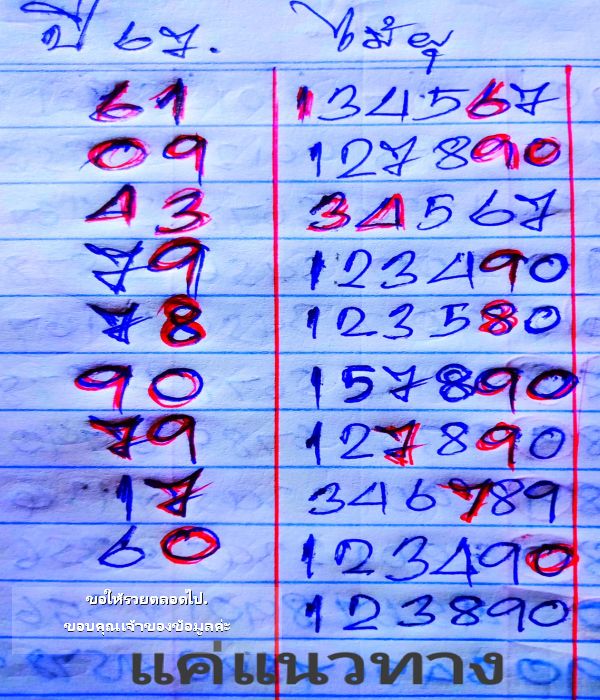 ปี 67. ไม้คู่
61 134567
09 127890
43 34567
79 123490
78 123580
90 157890
79 127890
17 346789
60 123490
123890
ขอให้รวยตลอดไป.
ขอบคุณเจ้าของข้อมูลค่ะ
แค่แนวทาง